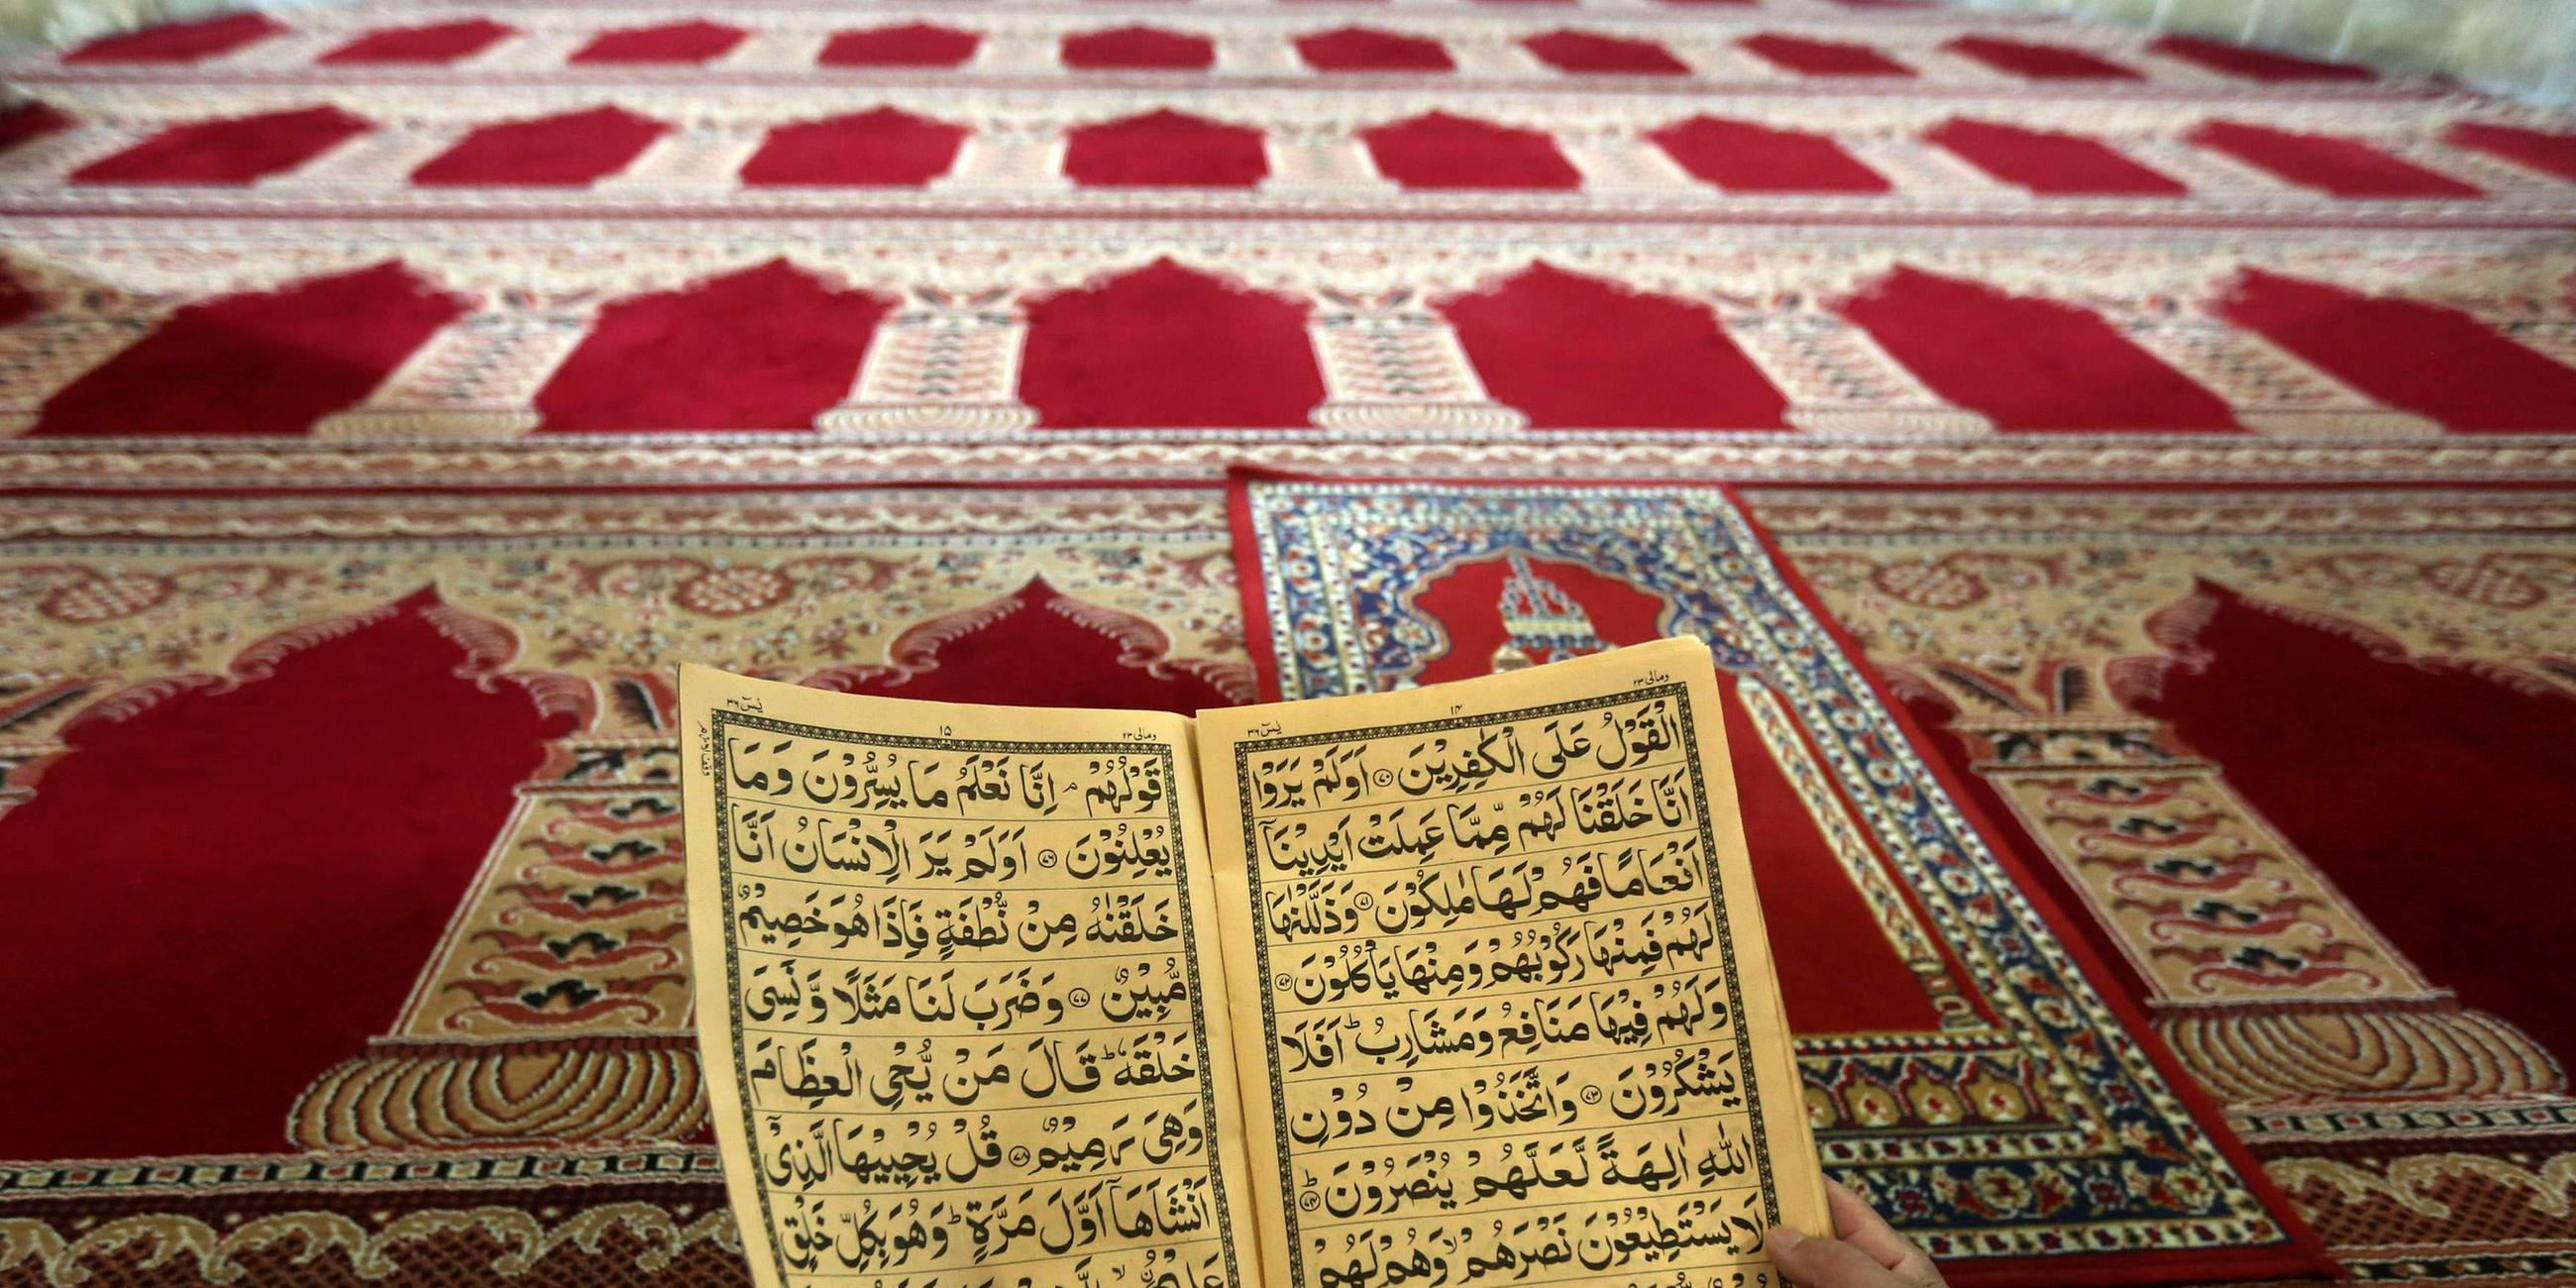 ومالی ۲۳
۱۴
يٰسٓ ۳۶
الْقَوْلُ عَلَى الْكٰفِرِيْنَ ﴿۷۰﴾ اَوَلَمْ يَرَوْا
اَنَّا خَلَقْنَا لَهُمْ مِّمَّا عَمِلَتْ اَيْدِيْنَاۤ
اَنْعَامًا فَهُمْ لَهَا مٰلِكُوْنَ ﴿۷۱﴾ وَذَلَّلْنٰهَا
لَهُمْ فَمِنْهَا رَكُوْبُهُمْ وَمِنْهَا يَاْكُلُوْنَ ﴿۷۲﴾
وَلَهُمْ فِيْهَا مَنَافِعُ وَمَشَارِبُ ؕ اَفَلَا
يَشْكُرُوْنَ ﴿۷۳﴾ وَاتَّخَذُوْا مِنْ دُوْنِ
اللّٰهِ اٰلِهَةً لَّعَلَّهُمْ يُنْصَرُوْنَ ؕ﴿۷۴﴾
لَا يَسْتَطِيْعُوْنَ نَصْرَهُمْ ۙ وَهُمْ لَهُمْ
ومالی ۲۳
۱۵
يٰسٓ ۳۶
قَوْلُهُمْ ۘ اِنَّا نَعْلَمُ مَا يُسِرُّوْنَ وَمَا
يُعْلِنُوْنَ ﴿۷۶﴾ اَوَلَمْ يَرَ الْاِنْسَانُ اَنَّا
خَلَقْنٰهُ مِنْ نُّطْفَةٍ فَاِذَا هُوَ خَصِيْمٌ
مُّبِيْنٌ ﴿۷۷﴾ وَضَرَبَ لَنَا مَثَلًا وَّنَسِىَ
خَلْقَهٗ ؕ قَالَ مَنْ يُّحْىِ الْعِظَامَ
وَهِىَ رَمِيْمٌ ﴿۷۸﴾ قُلْ يُحْيِيْهَا الَّذِىْۤ
اَنْشَاَهَاۤ اَوَّلَ مَرَّةٍ ؕ وَهُوَ بِكُلِّ خَلْقٍ
عَلِيْمٌ